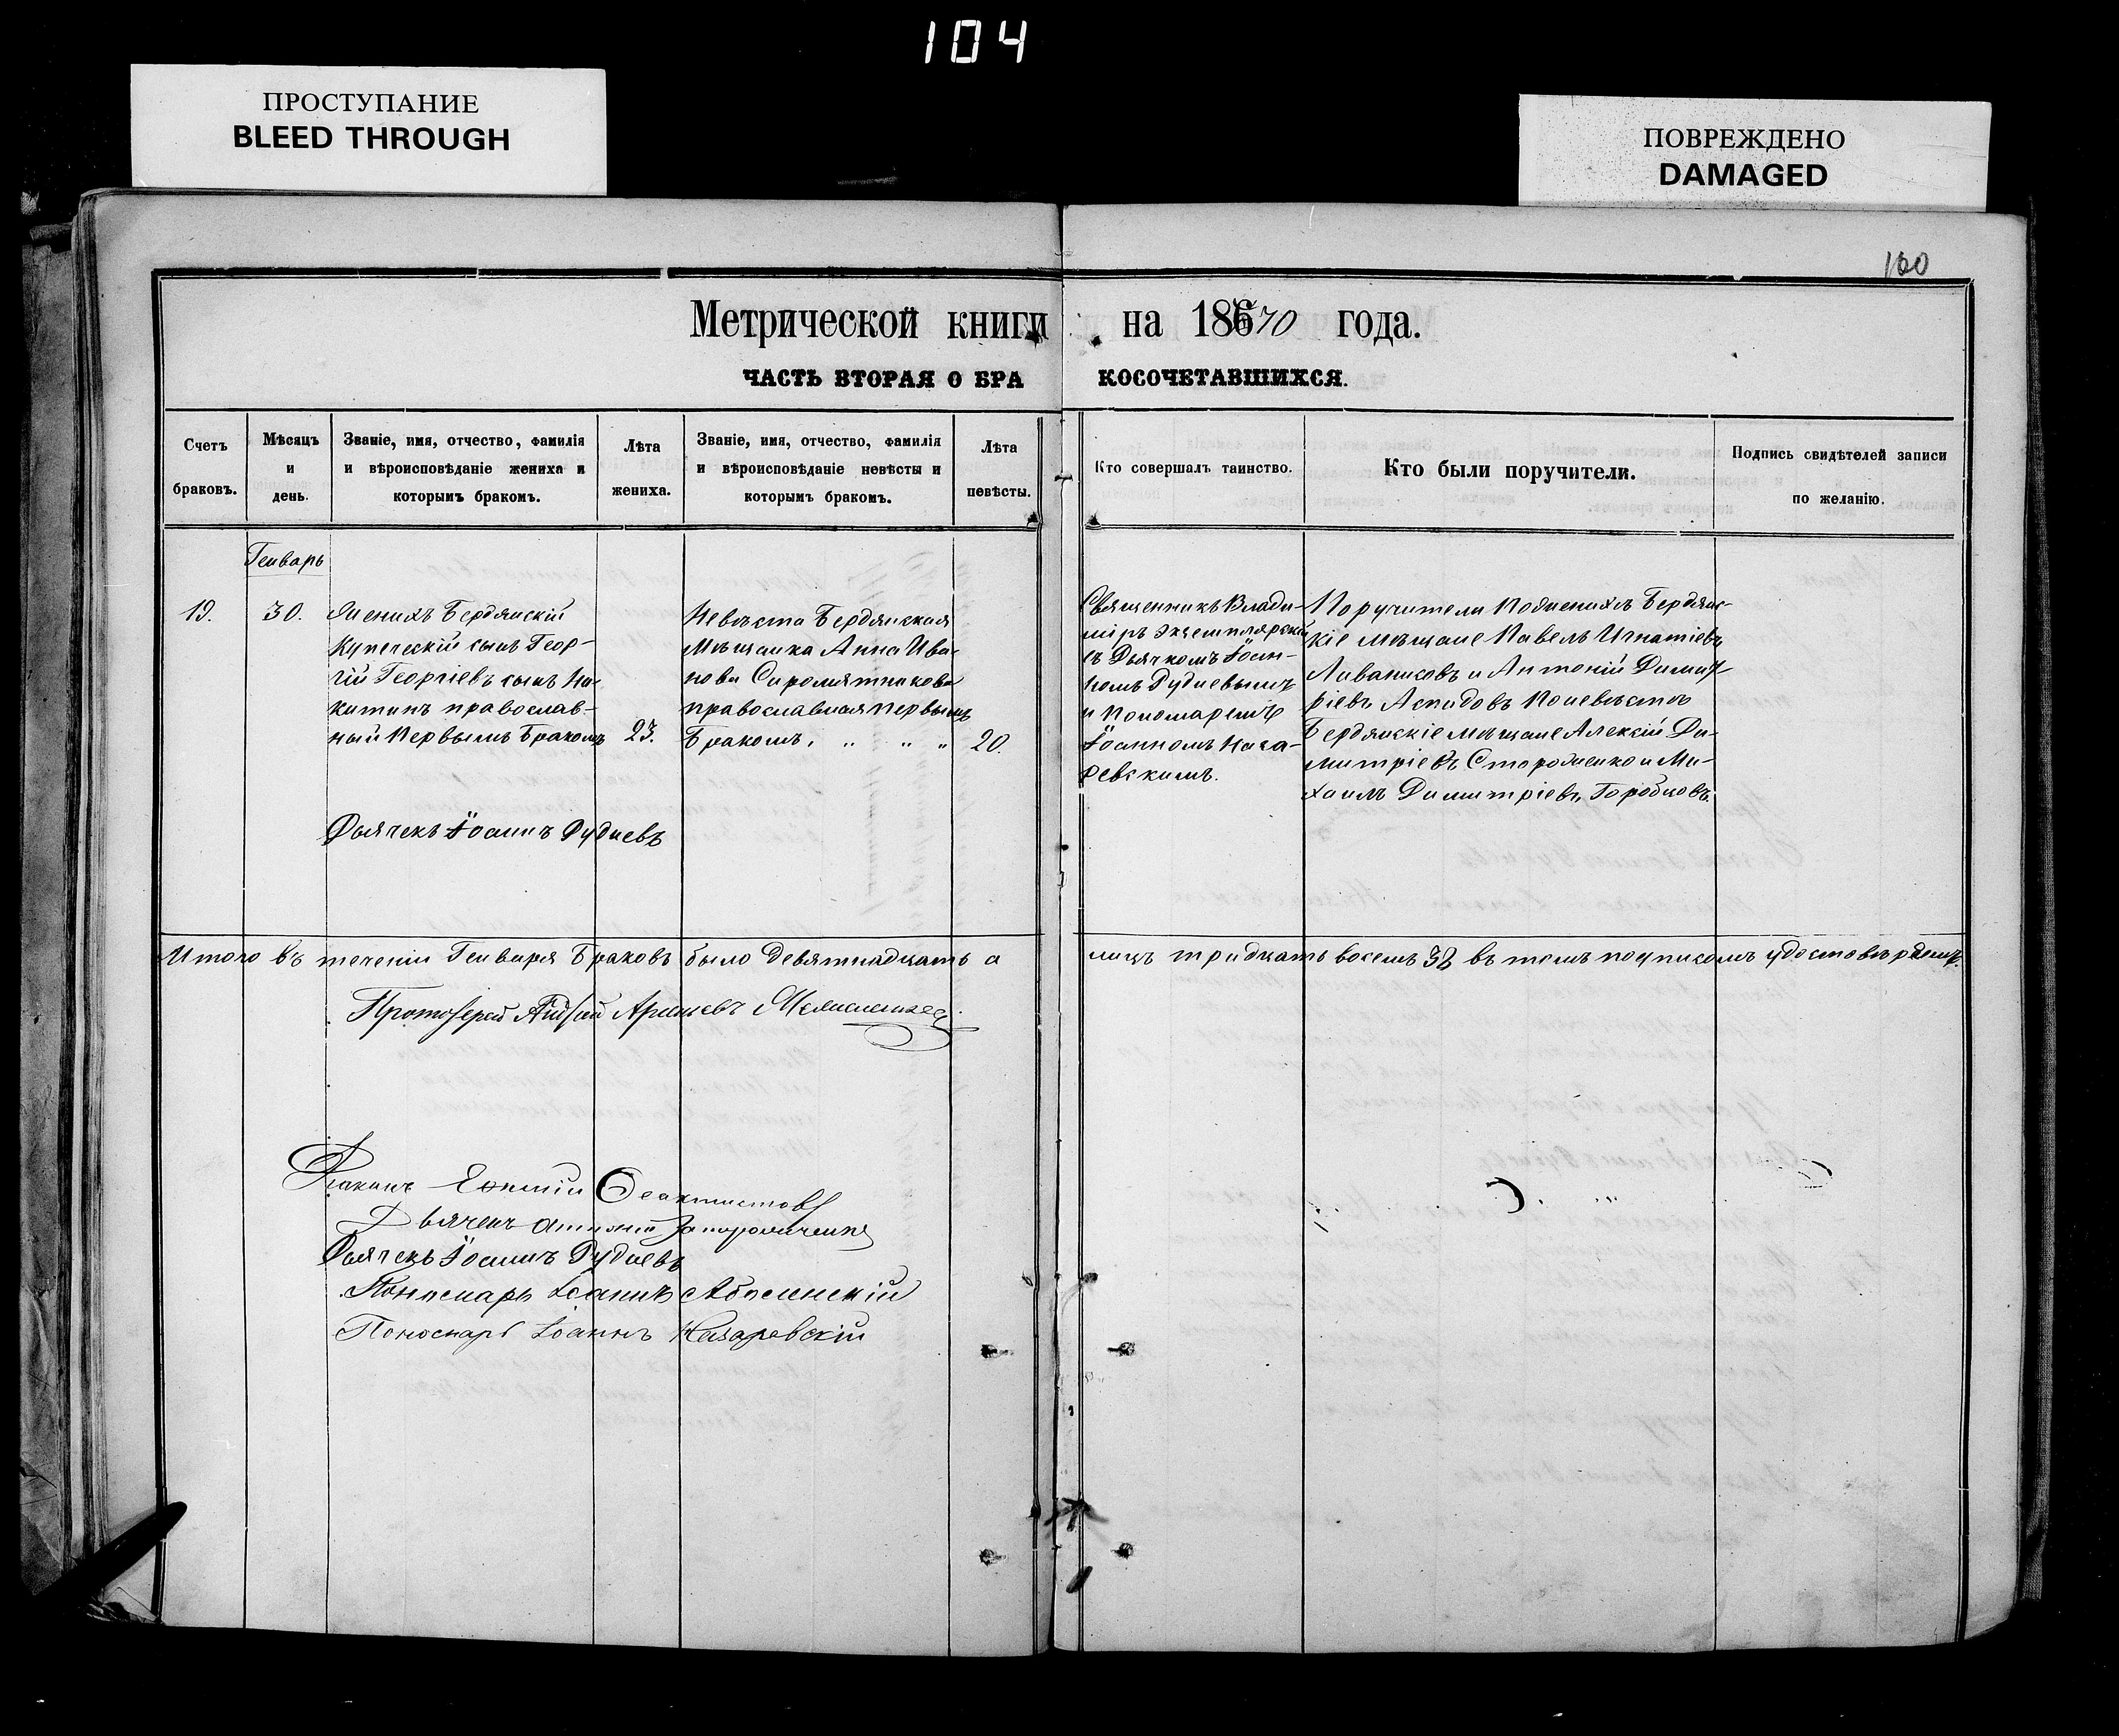 104
ПРОСТУПАНИЕ
BLEED THROUGH
ПОВРЕЖДЕНО
DAMAGED
160
Метрической книги на 18670 года.
ЧАСТЬ ВТОРАЯ О БРАКОСОЧЕТАВШИХСЯ.
Счетъ
браковъ.
Мѣсяцъ
и
день.
Званіе, имя, отчество, фамилія
и вѣроисповѣданіе жениха и
которымъ бракомъ.
Лѣта
жениха.
Званіе, имя, отчество, фамилія
и вѣроисповѣданіе невѣсты и
которымъ бракомъ.
Лѣта
невѣсты.
Кто совершалъ таинство.
Кто были поручители.
Подпись свидѣтелей записи
по желанію.
Генварь
19.
30.
Женихъ Бердянскій
Купеческій сынъ Геор-
гій Георгіевъ сынъ Ни-
китинъ православ-
ный Первымъ Бракомъ
23.
Невѣста Бердянская
Мѣщанка Анна Ива-
нова Сиромятникова
православная первымъ
Бракомъ. " " "
20.
Священникъ Влади-
міръ Экземплярскій
съ Дьячкомъ Іоан-
номъ Рудневымъ
и Пономаремъ
Іоанномъ Наза-
ревскимъ.
Поручители Поженихѣ Бердянс-
кіе мѣщане Павелъ Игнатіевъ
и Антоній Димит-
ріевъ Аспидовъ Поневѣстѣ
Бердянскіе мѣщане Алексій Ди-
митріевъ Стороженко и Ми-
хаилъ Димитріевъ Городцовъ.
Дьячекъ Іоаннъ Рудневъ
Итого въ теченіи Генваря Браковъ было девятнадцать а лицъ тридцать восемь 38 въ томъ подписомъ удостовѣряемъ.
Протоіерей
Діаконъ Ефимій Феоктистовъ
Дьячекъ Антоній
Дьячекъ Іоаннъ Рудневъ
Пономарь Іоаннъ
Пономарь Іоаннъ Назаревскій